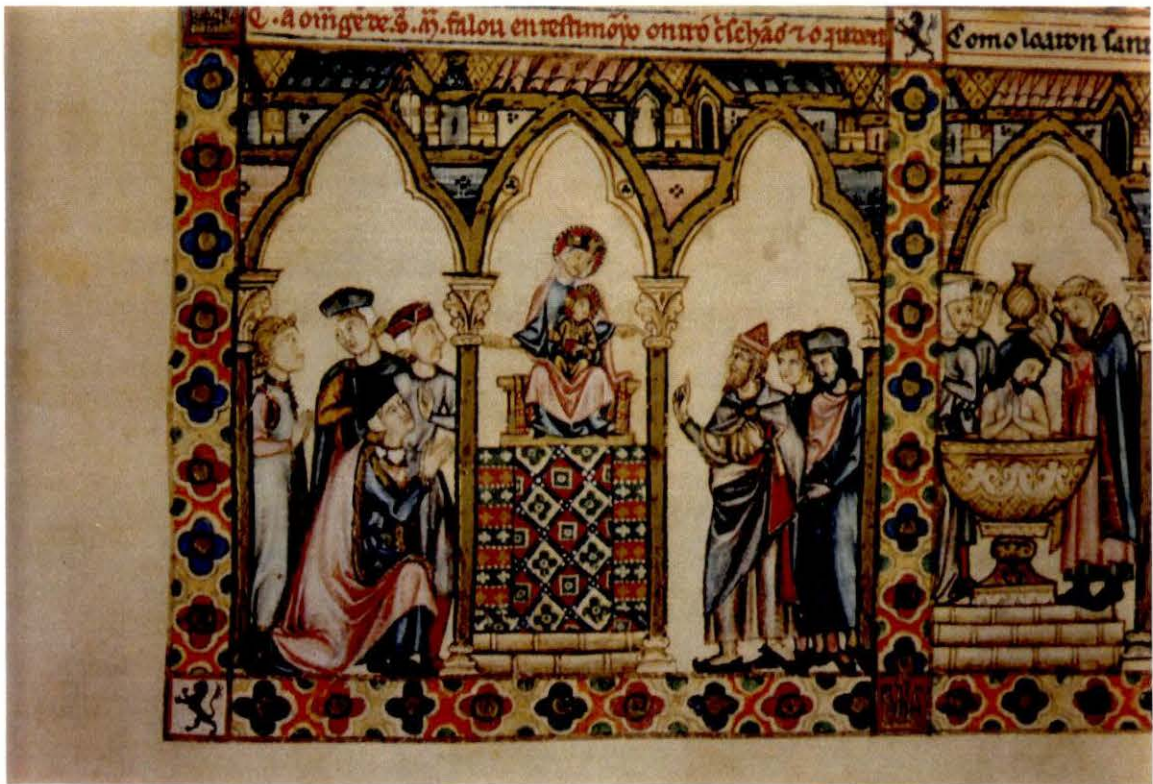 C. a omagẽ de. S. M. falou en testimõyo ontro cľschão ⁊ o judeu
Como loaron sant